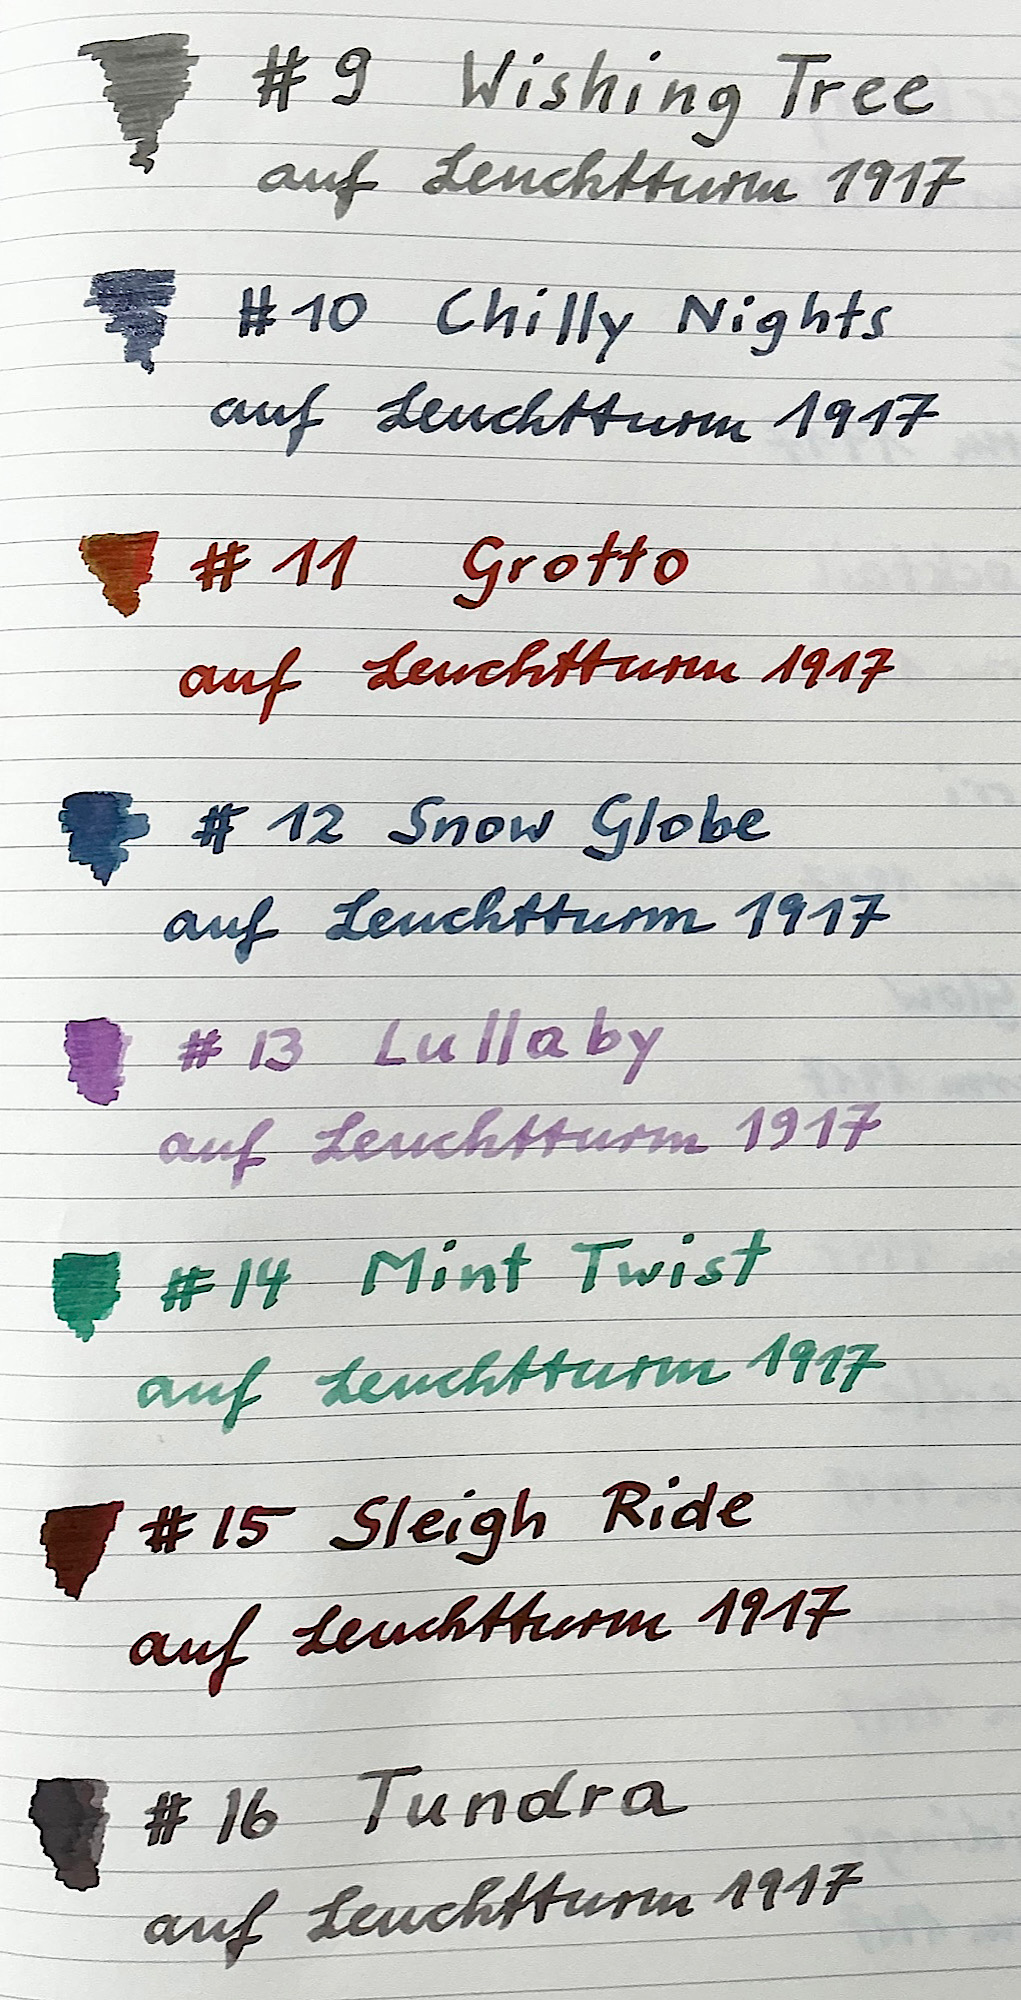 # 9 Wishing Tree
auf Leuchtturm 1917
# 10 Chilly Nights
auf Leuchtturm 1917
# 11 Grotto
auf Leuchtturm 1917
# 12 Snow Globe
auf Leuchtturm 1917
# 13 Lullaby
auf Leuchtturm 1917
# 14 Mint Twist
auf Leuchtturm 1917
# 15 Sleigh Ride
auf Leuchtturm 1917
# 16 Tundra
auf Leuchtturm 1917